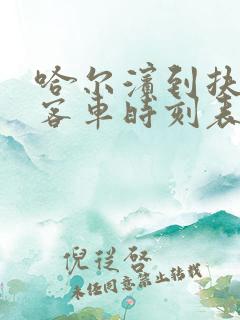 哈尔滨到扶
客车时刻表
倪从启
未经同意禁止转载